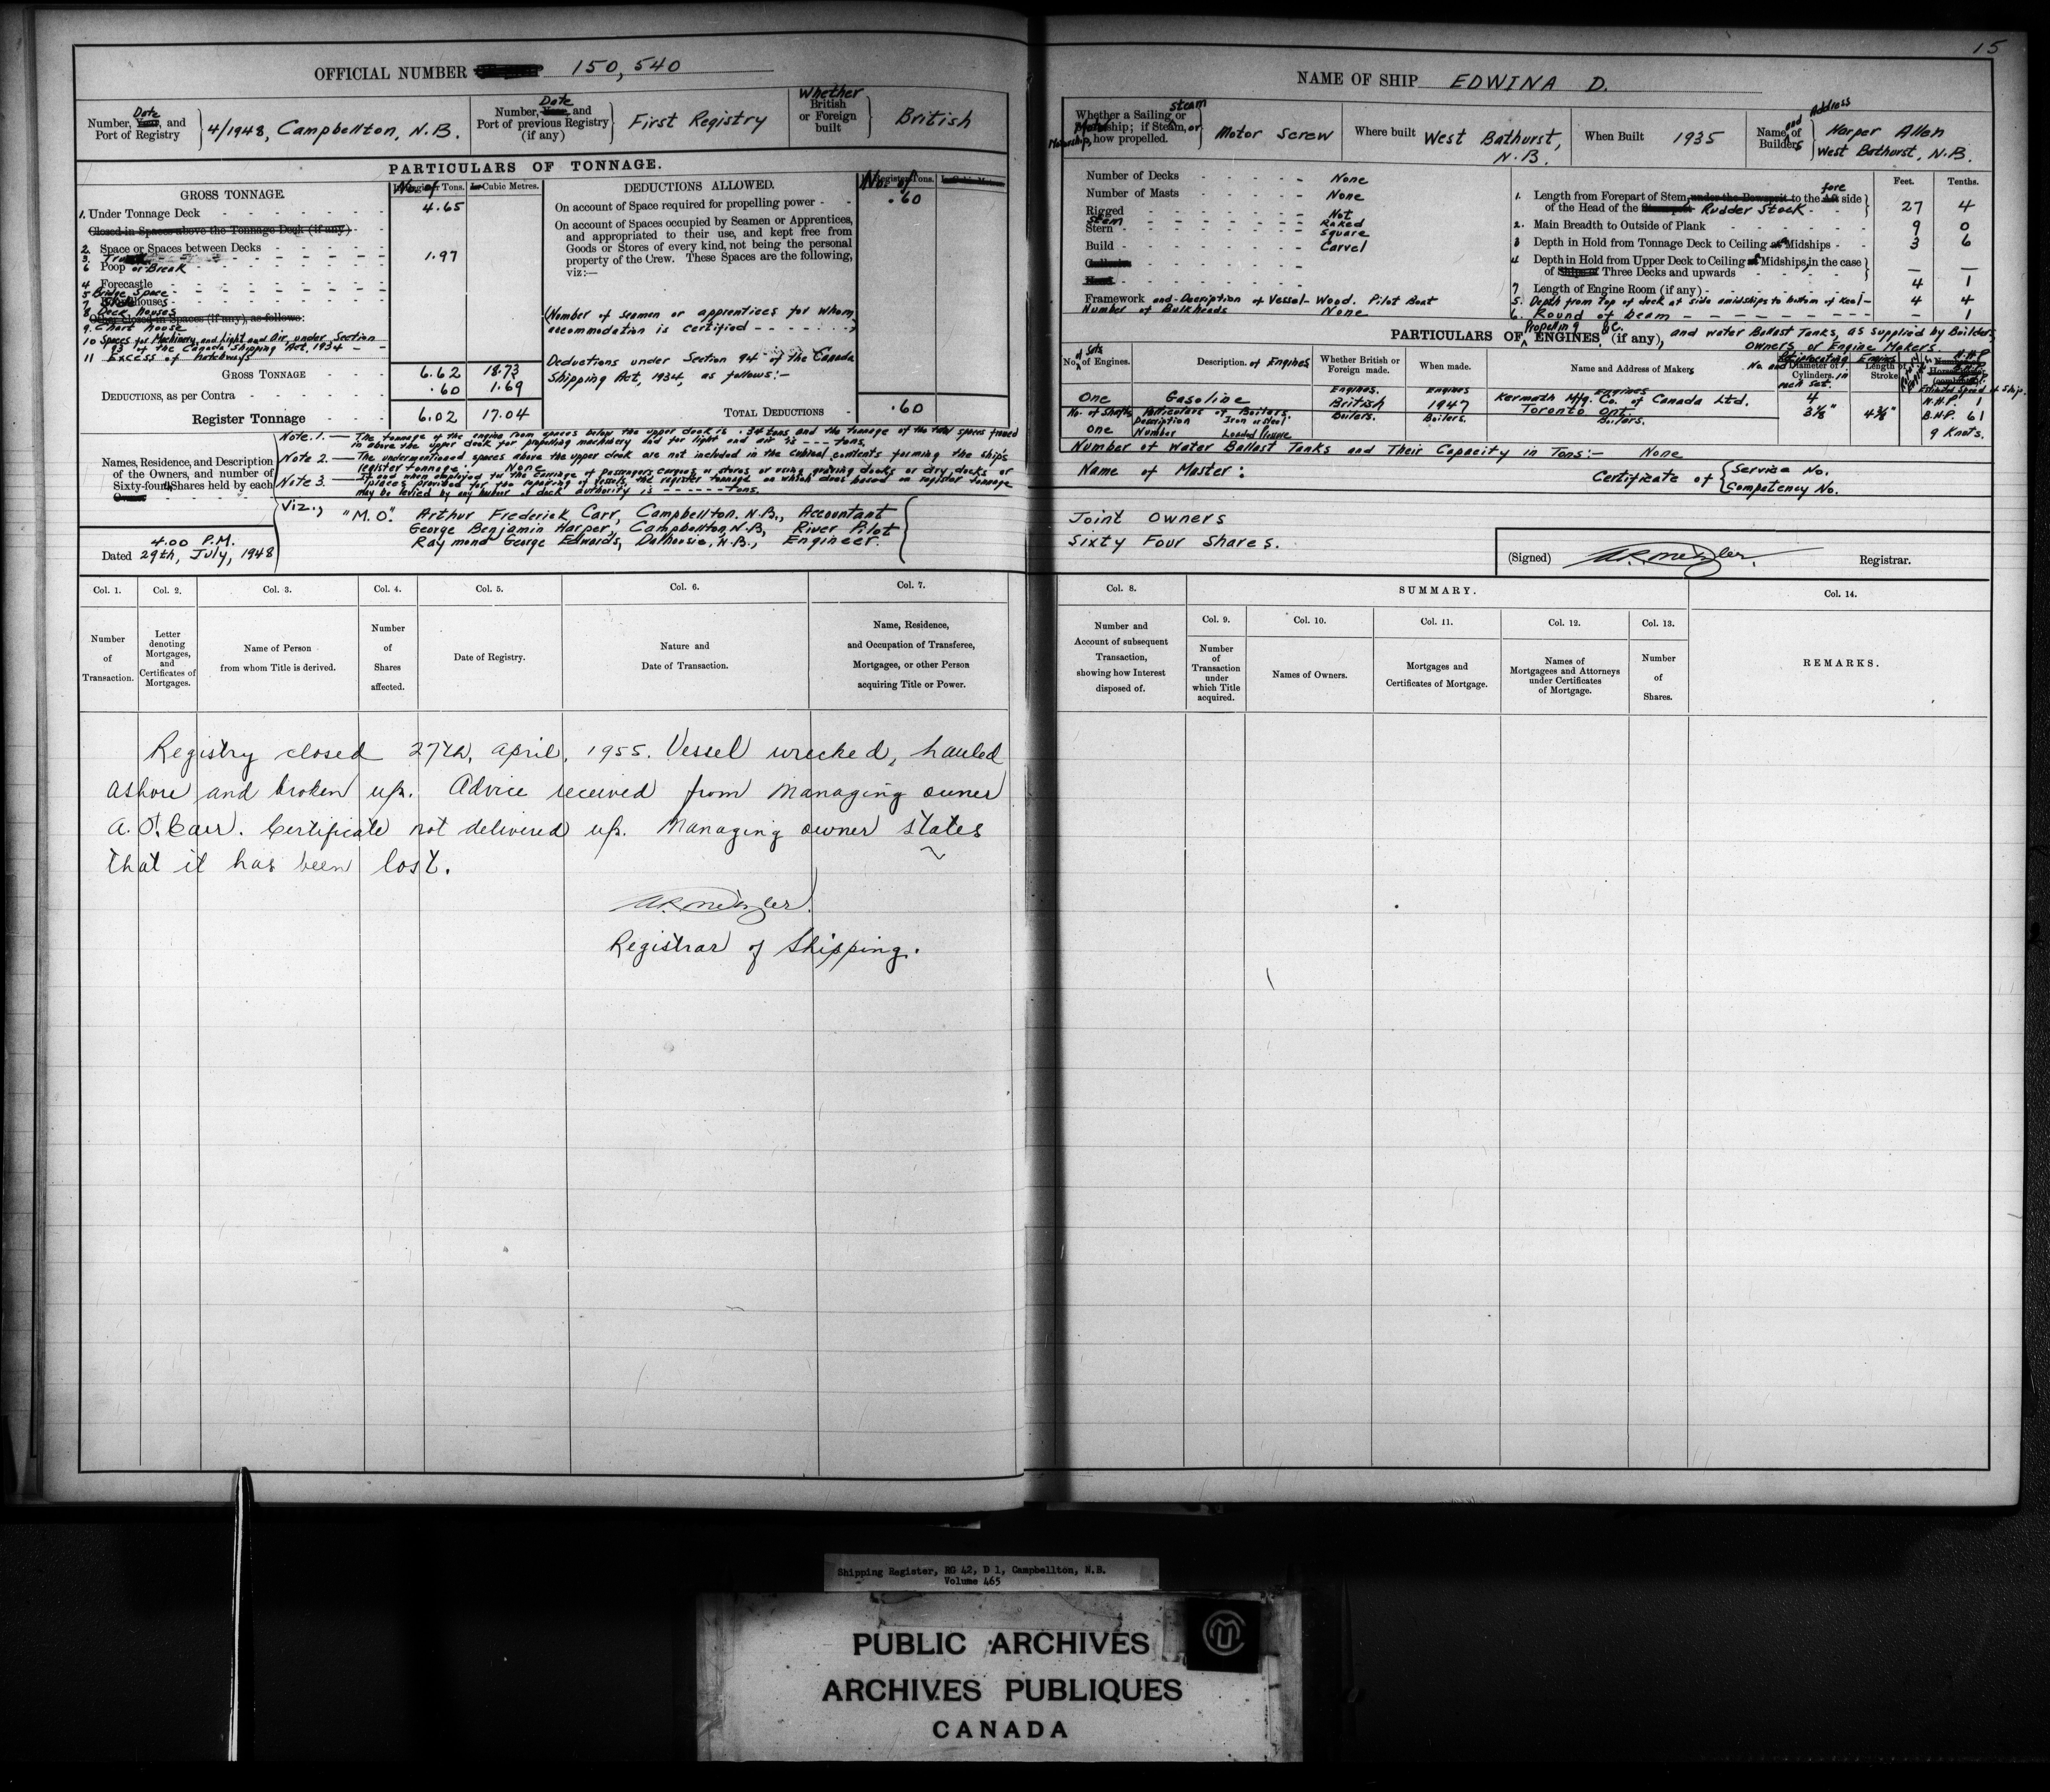 15
OFFICIAL NUMBER 150,540
Number, Date and Port of Registry
4/1948, Campbellton, N.B.
Number, Date and Port of previous Registry (if any)
First Registry
Whether British or Foreign built
British
PARTICULARS OF TONNAGE.
GROSS TONNAGE.
No. of Tons.
Cubic Metres.
1. Under Tonnage Deck 4.65
Closed-in Spaces above the Tonnage Deck (if any)
2. Space or Spaces between Decks
3. 1.97
6 Poop or Break
4 Forecastle
5 Bridge Space
7
8 Deck Houses
Other closed in Spaces (if any), as follows:
9. Chart House
10 Spaces for Machinery, and Light and Air, under Section
93 of the Canada Shipping Act, 1934
11 Excess of hatchways
GROSS TONNAGE 6.62 18.73
DEDUCTIONS, as per Contra .60 1.69
Register Tonnage 6.02 17.04
DEDUCTIONS ALLOWED.
No. of Tons.
On account of Space required for propelling power .60
On account of Spaces occupied by Seamen or Apprentices,
and appropriated to their use, and kept free from
Goods or Stores of every kind, not being the personal
property of the Crew. These Spaces are the following,
viz:—
(Number of seamen or apprentices for whom
accommodation is certified - - - - - - -)
Deductions under Section 94 of the Canada
Shipping Act, 1934, as follows:-
TOTAL DEDUCTIONS .60
Note. 1. — The tonnage of the engine room spaces below the upper deck is .34 tons and the tonnage of the total spaces framed
in above the upper deck for propelling machinery and for light and air is --- tons.
Note 2. — The undermentioned spaces above the upper deck are not included in the cubical contents forming the ship's
register tonnage: None
Note 3. —
may be levied by any harbour or dock authority is ------ tons.
Names, Residence, and Description
of the Owners, and number of
Sixty-fourth Shares held by each
Viz.,
"M.O." Arthur Frederick Carr, Campbellton, N.B., Accountant
George Benjamin Harper, Campbellton, N.B., River Pilot
Raymond George Edwards, Dalhousie, N.B., Engineer.
4.00 P.M.
Dated 29th, July, 1948
Col. 1.
Number of Transaction.
Col. 2.
Letter denoting Mortgages, and Certificates of Mortgages.
Col. 3.
Name of Person from whom Title is derived.
Col. 4.
Number of Shares affected.
Col. 5.
Date of Registry.
Col. 6.
Nature and Date of Transaction.
Col. 7.
Name, Residence, and Occupation of Transferee, Mortgagee, or other Person acquiring Title or Power.
Registry closed 27th, April, 1955. Vessel wrecked, hauled
ashore and broken up. Advice received from Managing owner
A. F. Carr. Certificate not delivered up. Managing owner states
that it has been lost.
Registrar of Shipping.
NAME OF SHIP EDWINA D.
Whether a Sailing or Steam ship; if Steam, or Motorship, how propelled.
Motor Screw
Where built
West Bathurst, N.B.
When Built
1935
Name and Address of Builders
Harper Allen
West Bathurst, N.B.
Number of Decks None
Number of Masts None
Rigged Not
Stem Raked
Stern Square
Build Carvel
Framework and Description of Vessel - Wood. Pilot Boat
Number of Bulkheads None
Feet. Tenths.
1. Length from Forepart of Stem, under the Bowsprit to the fore side
of the Head of the Rudder Stock 27 4
2. Main Breadth to Outside of Plank 9 0
3 Depth in Hold from Tonnage Deck to Ceiling at Midships 3 6
4 Depth in Hold from Upper Deck to Ceiling at Midships, in the case
of Three Decks and upwards — —
7 Length of Engine Room (if any) 4 1
5. Depth from top of deck at side amidships to bottom of keel - 4 4
6. Round of beam - 1
PARTICULARS OF Propelling ENGINES, &c. (if any), and water Ballast Tanks, as supplied by Builders,
Owners, or Engine Makers.
No. of Sets of Engines.
Description of Engines
Whether British or Foreign made.
When made.
Name and Address of Makers
No. and Diameter of Cylinders in each set.
Length of Stroke
One
Gasoline
Engines. British
Engines 1947
Engines
Kermath Mfg. Co. of Canada Ltd.
Toronto Ont.
4
N.H.P. 1
B.H.P. 61
9 Knots.
No. of Shafts
One
Particulars of Boilers.
Description
Number
Iron or Steel
Loaded Pressure
Boilers.
Boilers.
Boilers.
Number of Water Ballast Tanks and Their Capacity in Tons:- None
Name of Master:
Certificate of { Service No.
Competency No.
Joint Owners
Sixty Four Shares.
(Signed) Registrar.
Col. 8.
Number and Account of subsequent Transaction, showing how Interest disposed of.
SUMMARY.
Col. 9.
Number of Transaction under which Title acquired.
Col. 10.
Names of Owners.
Col. 11.
Mortgages and Certificates of Mortgage.
Col. 12.
Names of Mortgagees and Attorneys under Certificates of Mortgage.
Col. 13.
Number of Shares.
Col. 14.
REMARKS.
Shipping Register, RG 42, D 1, Campbellton, N.B.
Volume 465
PUBLIC ARCHIVES
ARCHIVES PUBLIQUES
CANADA